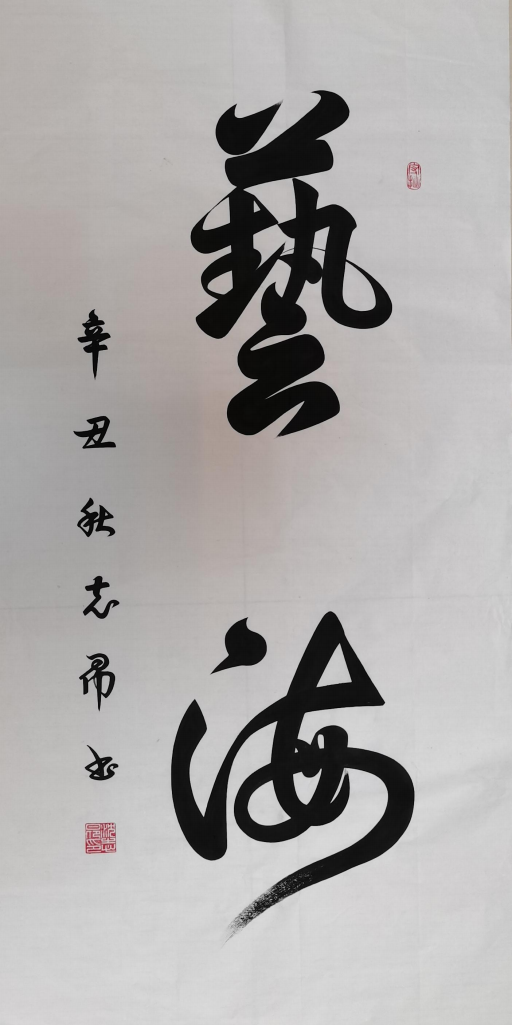 藝海
辛丑秋志昂书